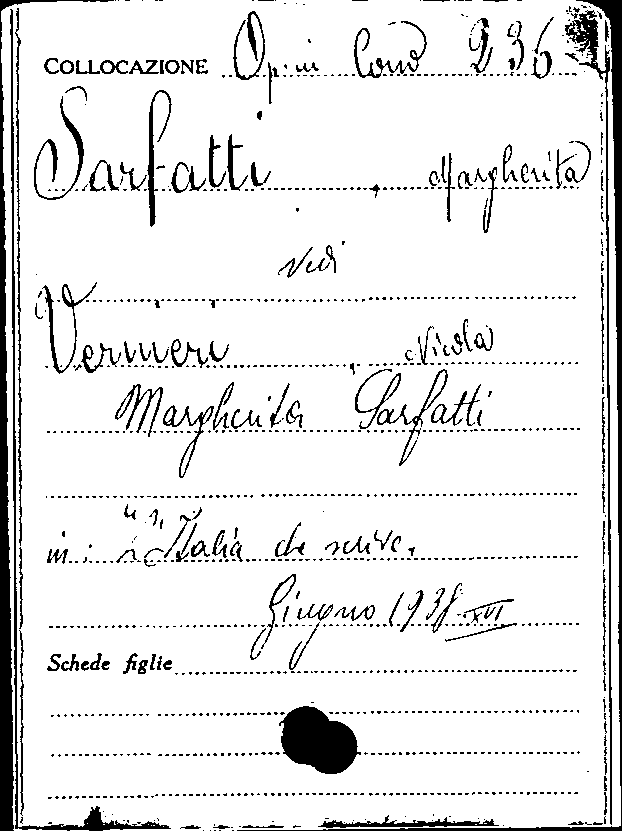 COLLOCAZIONE Op. in Cons 236
Sarfatti, Margherita
Vedi
Vernieri, Nicola
Margherita Sarfatti
in: "L'Italia che scrive.
Giugno 1938-XVI
Schede figlie